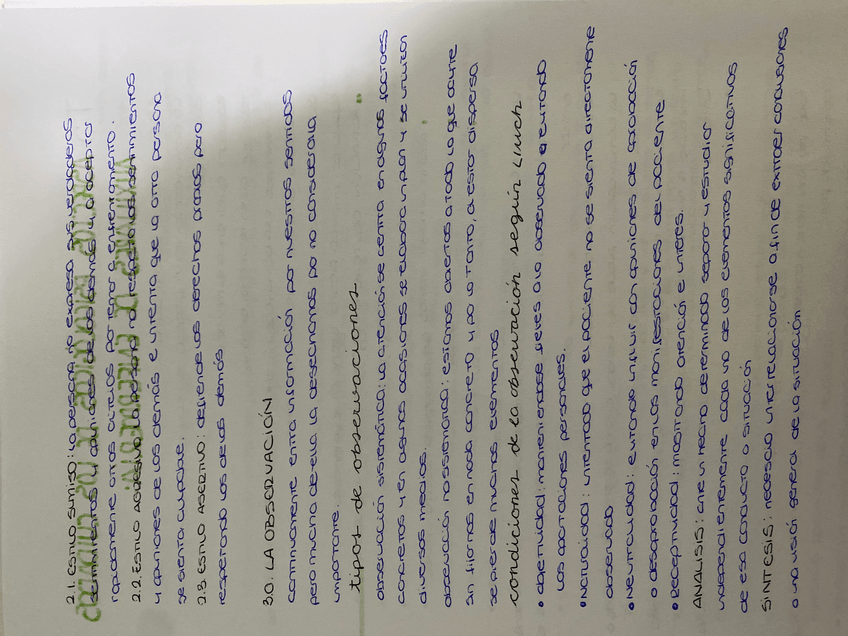 2.1. ESTILO SUMISO: la persona no expresa sus verdaderos
sentimientos y opiniones de los demás y a aceptar
rápidamente otras actitudes por temor a enfrentamiento.
2.2. ESTILO AGRESIVO: la persona no respeta los sentimientos
y opiniones de los demás e intenta que la otra persona
se sienta culpable.
2.3 ESTILO ASERTIVO: defiende los derechos propios pero
respetando los de los demás
3.0. LA OBSERVACIÓN
Continuamente entra información por nuestros sentidos
pero mucha de ella la desechamos por no considerarla
importante.
tipos de observaciones
observación sistemática: la atención se centra en algunos factores
concretos y en algunas ocasiones se elabora un plan y se utilizan
diversos medios.
observación no sistemática: estamos abiertos a todo lo que ocurre
sin fijarnos en nada concreto y por lo tanto, al estar dispersa
se pierde muchos elementos
condiciones de la observación según Linch
• objetividad: manteniendose fieles a lo observado e evitando
las aportaciones personales.
• Naturalidad: intentado que el paciente no se sienta directamente
observado
• Neutralidad: evitando influir con opiniones de aprobación
o desaprobación en las manifestaciones del paciente
• Receptividad: mostrando atención e interés.
ANALISIS: ante un hecho determinado separar y estudiar
independientemente cada uno de los elementos significativos
de esa conducta o situación
SINTESIS: necesario interrelacionarse a fin de extraer conclusiones
o una visión general de la situación